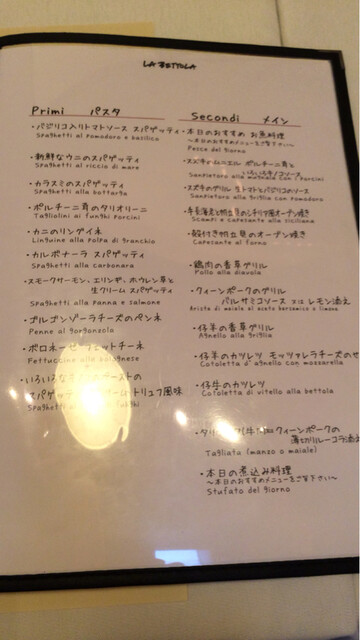 LA BETTOLA
Primi パスタ
・バジリコ入りトマトソース スパゲッティ
Spaghetti al pomodoro e basilico
・新鮮なウニのスパゲッティ
Spaghetti al riccio di mare
・カラスミのスパゲッティ
Spaghetti alla bottarga
・ポルチーニ茸のタリオリーニ
Tagliolini ai funghi Porcini
・カニのリングイネ
Linguine alla polpa di granchio
・カルボナーラ スパゲッティ
Spaghetti alla carbonara
・スモークサーモン、エリンギ、ホウレン草と
生クリーム スパゲッティ
Spaghetti alla panna e salmone
・ゴルゴンゾーラチーズのペンネ
Penne al gorgonzola
・ボロネーゼ
Fettuccine alla bolognese
・いろいろな
ペーストの
スパゲッ
トリュフ風味
Spaghe
Secondi メイン
・本日のおすすめ お魚料理
〜本日のおすすめメニューをご覧下さい〜
Pesce del giorno
・スズキのムニエル ポルチーニ茸と
いろいろキノコソース
Sanpietro alla mugnaia con Porcini
・スズキのグリル 生トマトとバジリコのソース
Sanpietro alla griglia con pomodoro
・手長海老と帆立貝のシチリア風オーブン焼き
Scampi e capesante alla siciliana
・殻付き帆立貝のオーブン焼き
Capesante al forno
・鶏肉の香草グリル
Pollo alla diavola
・クィーンポークのグリル
バルサミコソース 又は レモン添え
Arista di maiale al aceto barsamico o limone
・仔羊の香草グリル
Agnello alla griglia
・仔羊のカツレツ モッツァレラチーズのせ
Cotoletta d'agnello con mozzarella
・仔牛のカツレツ
Cotoletta di vitello alla bettola
クィーンポークの
薄切りルーコラ添え
Tagliata (manzo o maiale)
・本日の煮込み料理
〜本日のおすすめメニューをご覧下さい〜
Stufato del giorno